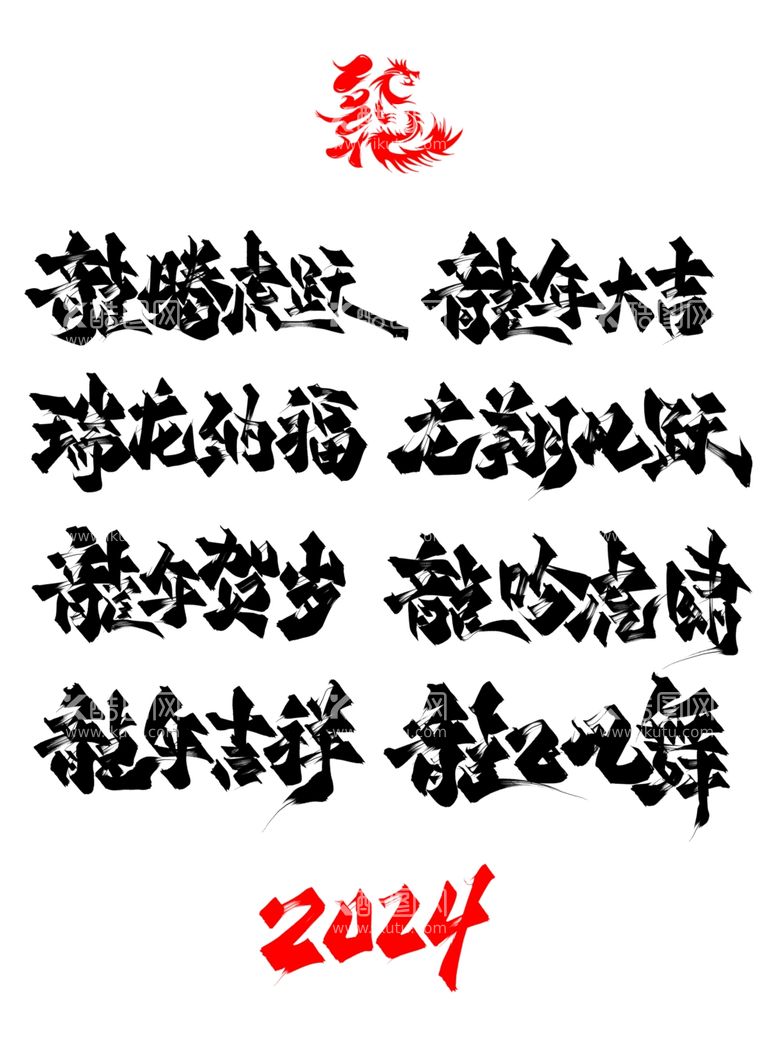 龍
龍腾虎跃 龍年大吉
瑞龙纳福 龙翔凤跃
龍年贺岁 龍吟虎啸
龍年吉祥 龍飞凤舞
2024
酷图网
www.ikutu.com